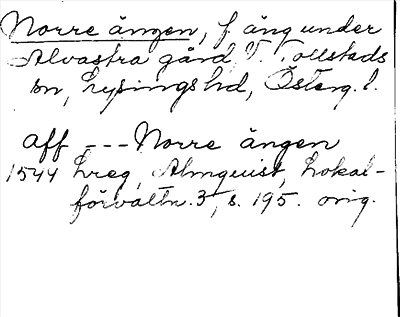 Norre ängen, f. äng under
Alvastra gård, V. Tollstads
sn, Lysings hd, Österg. l.
aff --- Norre ängen
1544 Lreg, Almquist, Lokal-
förvaltn. 3, s. 195. orig.